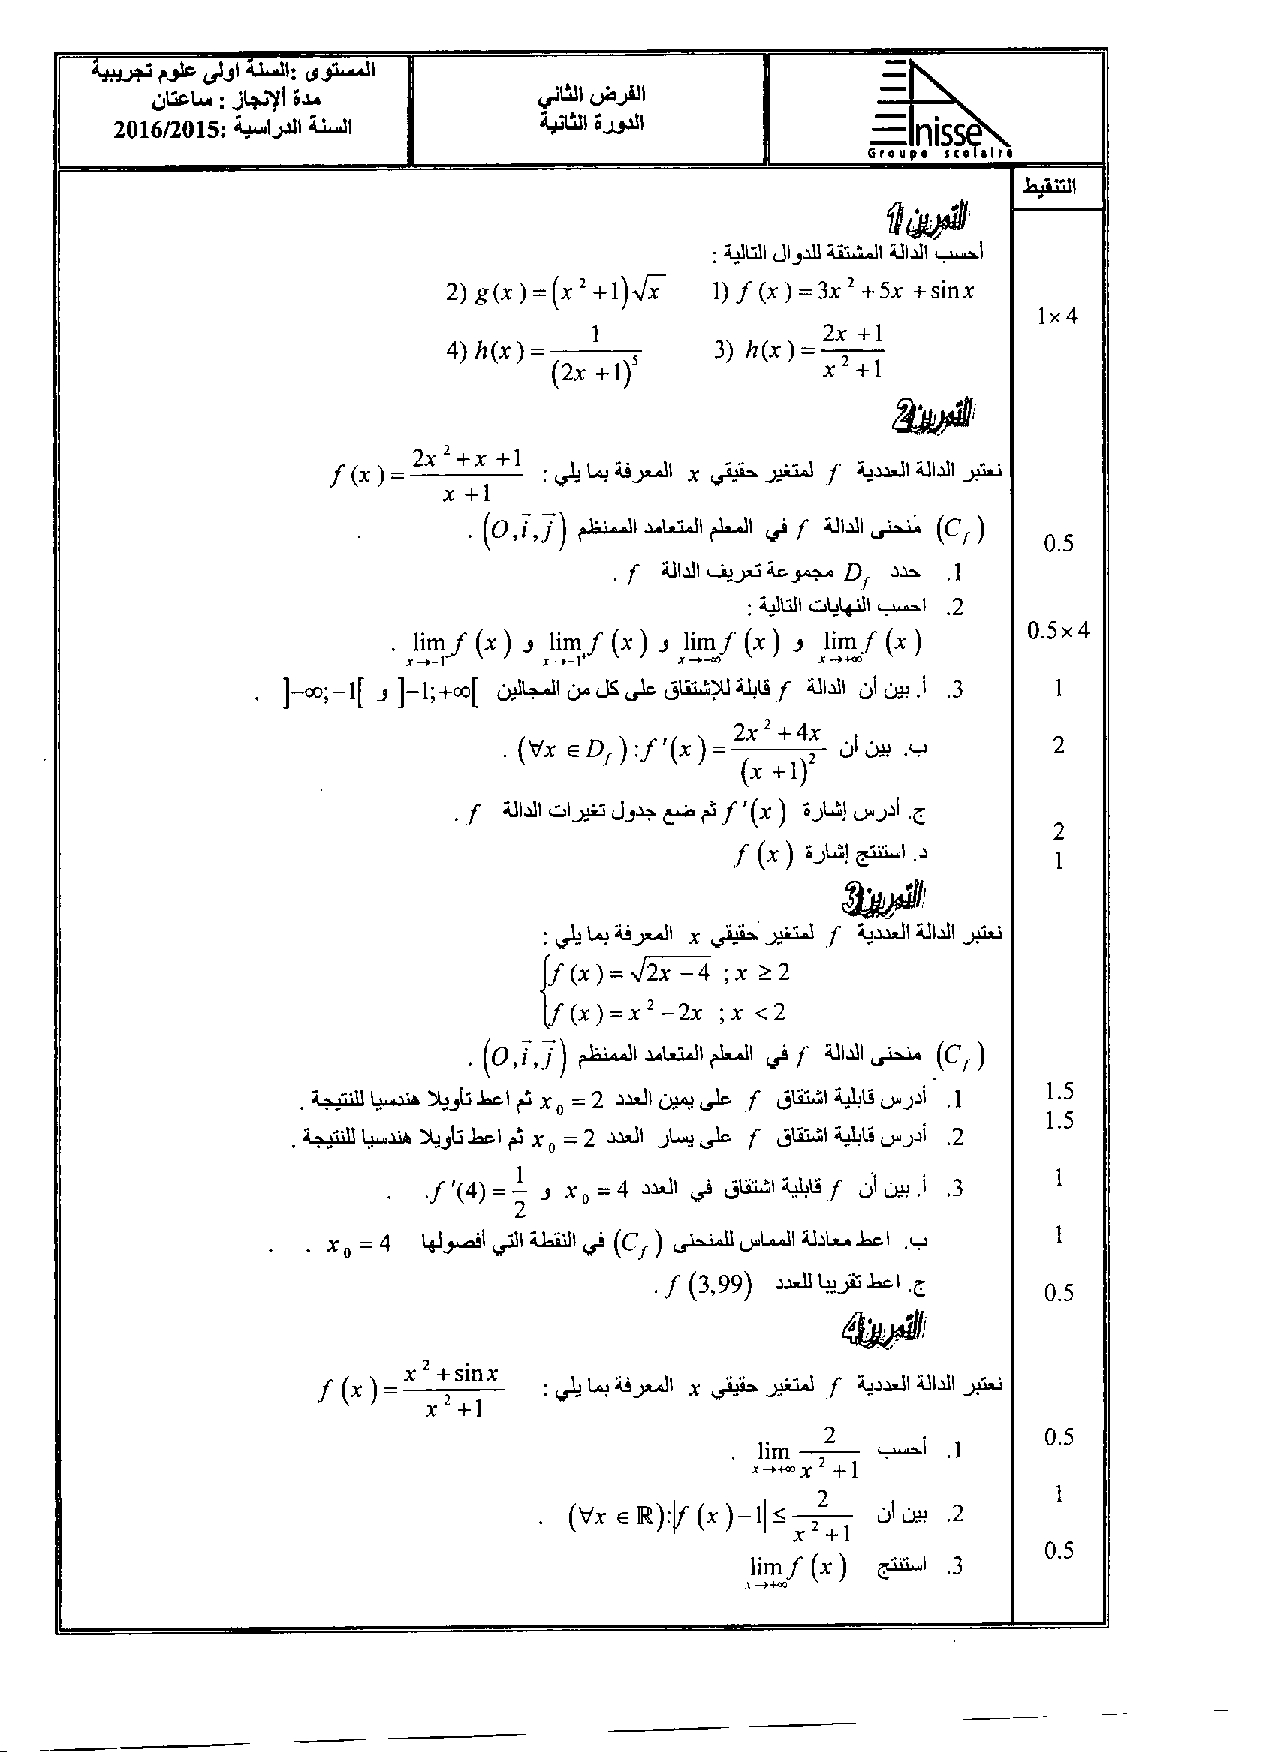 المستوى :السنة اولى علوم تجريبية
مدة ألإنجاز : ساعتان
السنة الدراسية :2016/2015
الفرض الثاني
الدورة الثانية
Elnisse
Groupe scolaire
التنقيط
التمرين 1
أحسب الدالة المشتقة للدوال التالية :
1) f (x) = 3x² + 5x + sin x    2) g(x) = (x² + 1)√x
1×4
3) h(x) = (2x + 1)/(x² + 1)    4) h(x) = 1/(2x + 1)⁵
التمرين 2
نعتبر الدالة العددية f لمتغير حقيقي x المعرفة بما يلي : f (x) = (2x² + x + 1)/(x + 1)
(C_f) منحنى الدالة f في المعلم المتعامد الممنظم (O, i⃗, j⃗) .
0.5
1. حدد D_f مجموعة تعريف الدالة f .
2. احسب النهايات التالية :
lim_{x→+∞} f (x) و lim_{x→−∞} f (x) و lim_{x→−1⁺} f (x) و lim_{x→−1⁻} f (x) .
0.5×4
3. أ. بين أن الدالة f قابلة للإشتقاق على كل من المجالين ]−1;+∞[ و ]−∞;−1[ .
1
ب. بين أن (∀x ∈ D_f) : f '(x) = (2x² + 4x)/(x + 1)² .
2
ج. أدرس إشارة f '(x) ثم ضع جدول تغيرات الدالة f .
2
د. استنتج إشارة f (x)
1
التمرين 3
نعتبر الدالة العددية f لمتغير حقيقي x المعرفة بما يلي :
{ f (x) = √(2x − 4) ; x ≥ 2
f (x) = x² − 2x ; x < 2
(C_f) منحنى الدالة f في المعلم المتعامد الممنظم (O, i⃗, j⃗) .
1. أدرس قابلية اشتقاق f على يمين العدد x₀ = 2 ثم اعط تأويلا هندسيا للنتيجة .
1.5
2. أدرس قابلية اشتقاق f على يسار العدد x₀ = 2 ثم اعط تأويلا هندسيا للنتيجة .
1.5
3. أ. بين أن f قابلية اشتقاق في العدد x₀ = 4 و f '(4) = 1/2 .
1
ب. اعط معادلة المماس للمنحنى (C_f) في النقطة التي أفصولها x₀ = 4 .
1
ج. اعط تقريبا للعدد f (3,99) .
0.5
التمرين 4
نعتبر الدالة العددية f لمتغير حقيقي x المعرفة بما يلي : f (x) = (x² + sin x)/(x² + 1)
1. أحسب lim_{x→+∞} 2/(x² + 1) .
0.5
2. بين أن (∀x ∈ ℝ) : |f (x) − 1| ≤ 2/(x² + 1) .
1
3. استنتج lim_{x→+∞} f (x)
0.5